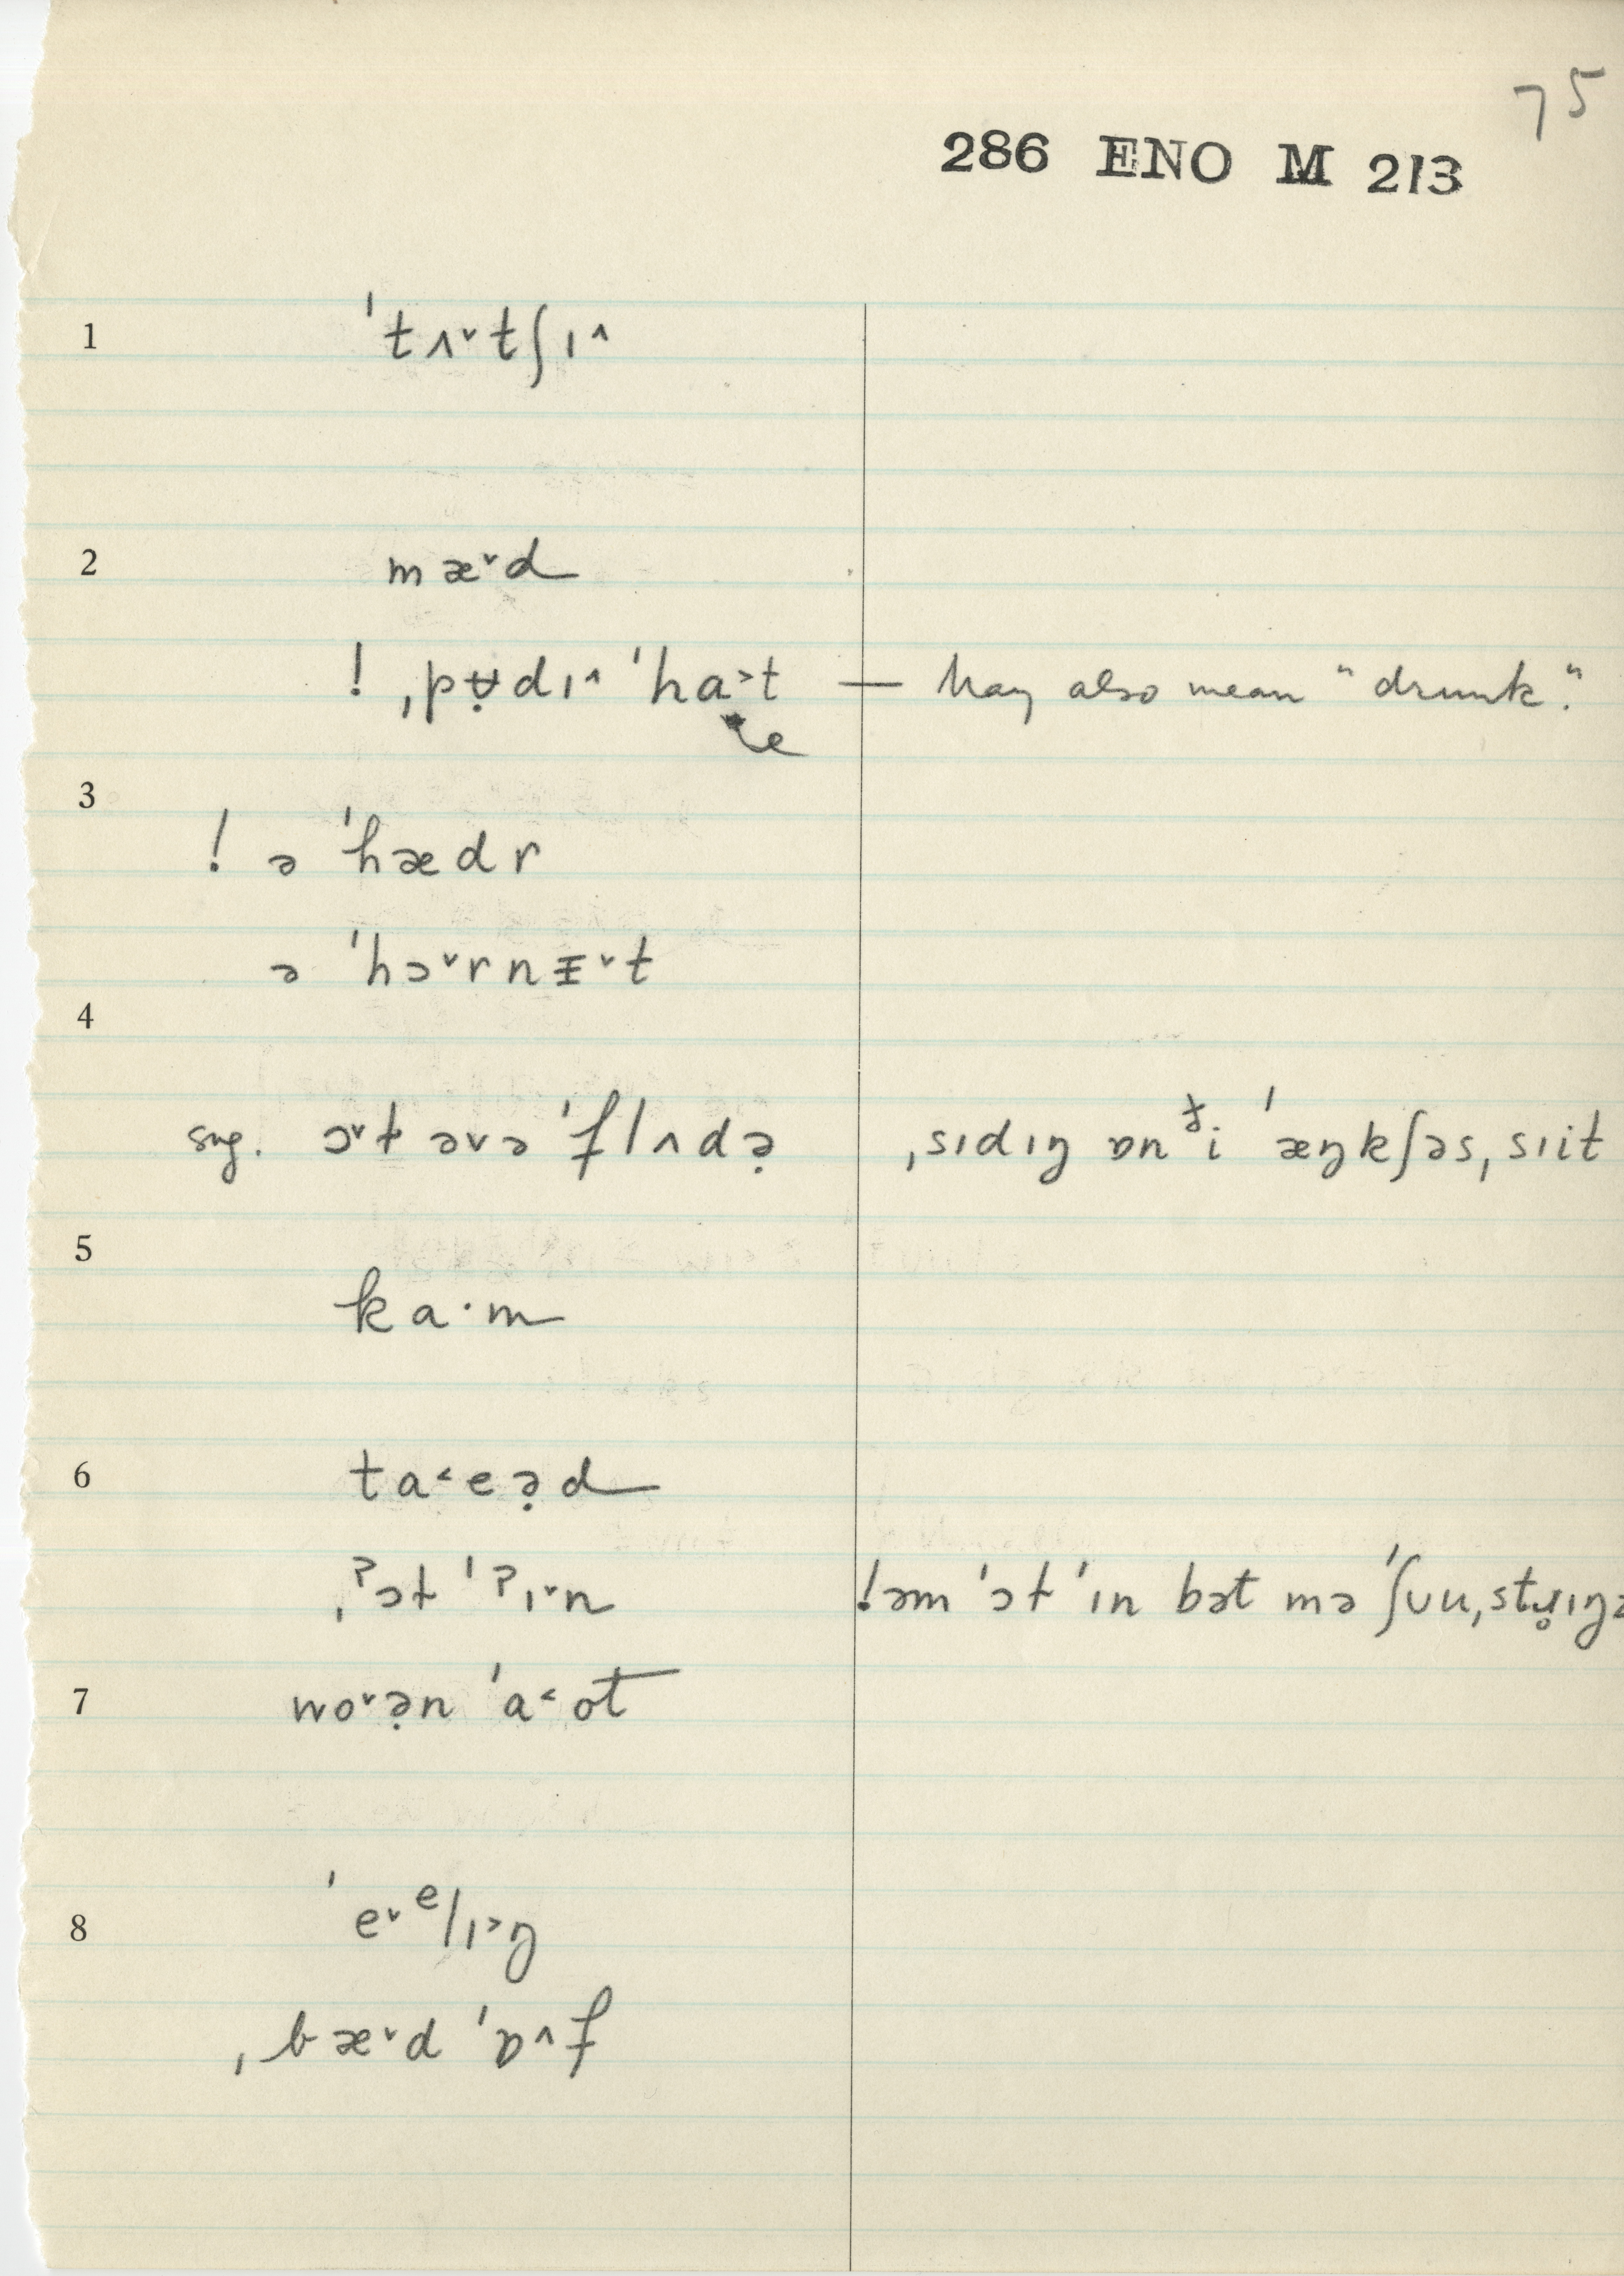 75
286 ENO M 213
1 ˈtʌ˅tʃɪ˄
2 mæ˅d
! ˌpʉ̣dɪ˄ ˈha˃t — May also mean "drunk."
e
3
! ə ˈhædr
ə ˈhɔ˅rnᵻ˅t
4
sug. ɔ˅t əvə ˈflʌdə̣ ˌsɪdɪŋ ɒn ði ˈæŋkʃəs ˌsɪit
5
ka·m
6 ta˂eə̣d
ˌˀɔt ˈˀɪ˅n !əm ˈɔt ˈɪn bət mə ˈʃʊu ˌstɹ̥ɪŋz
7 wo˅ə̣n ˈa˂ot
8 ˈe˅ᵉlɪ˃ŋ
ˌbæ˅d ˈɒ˄f